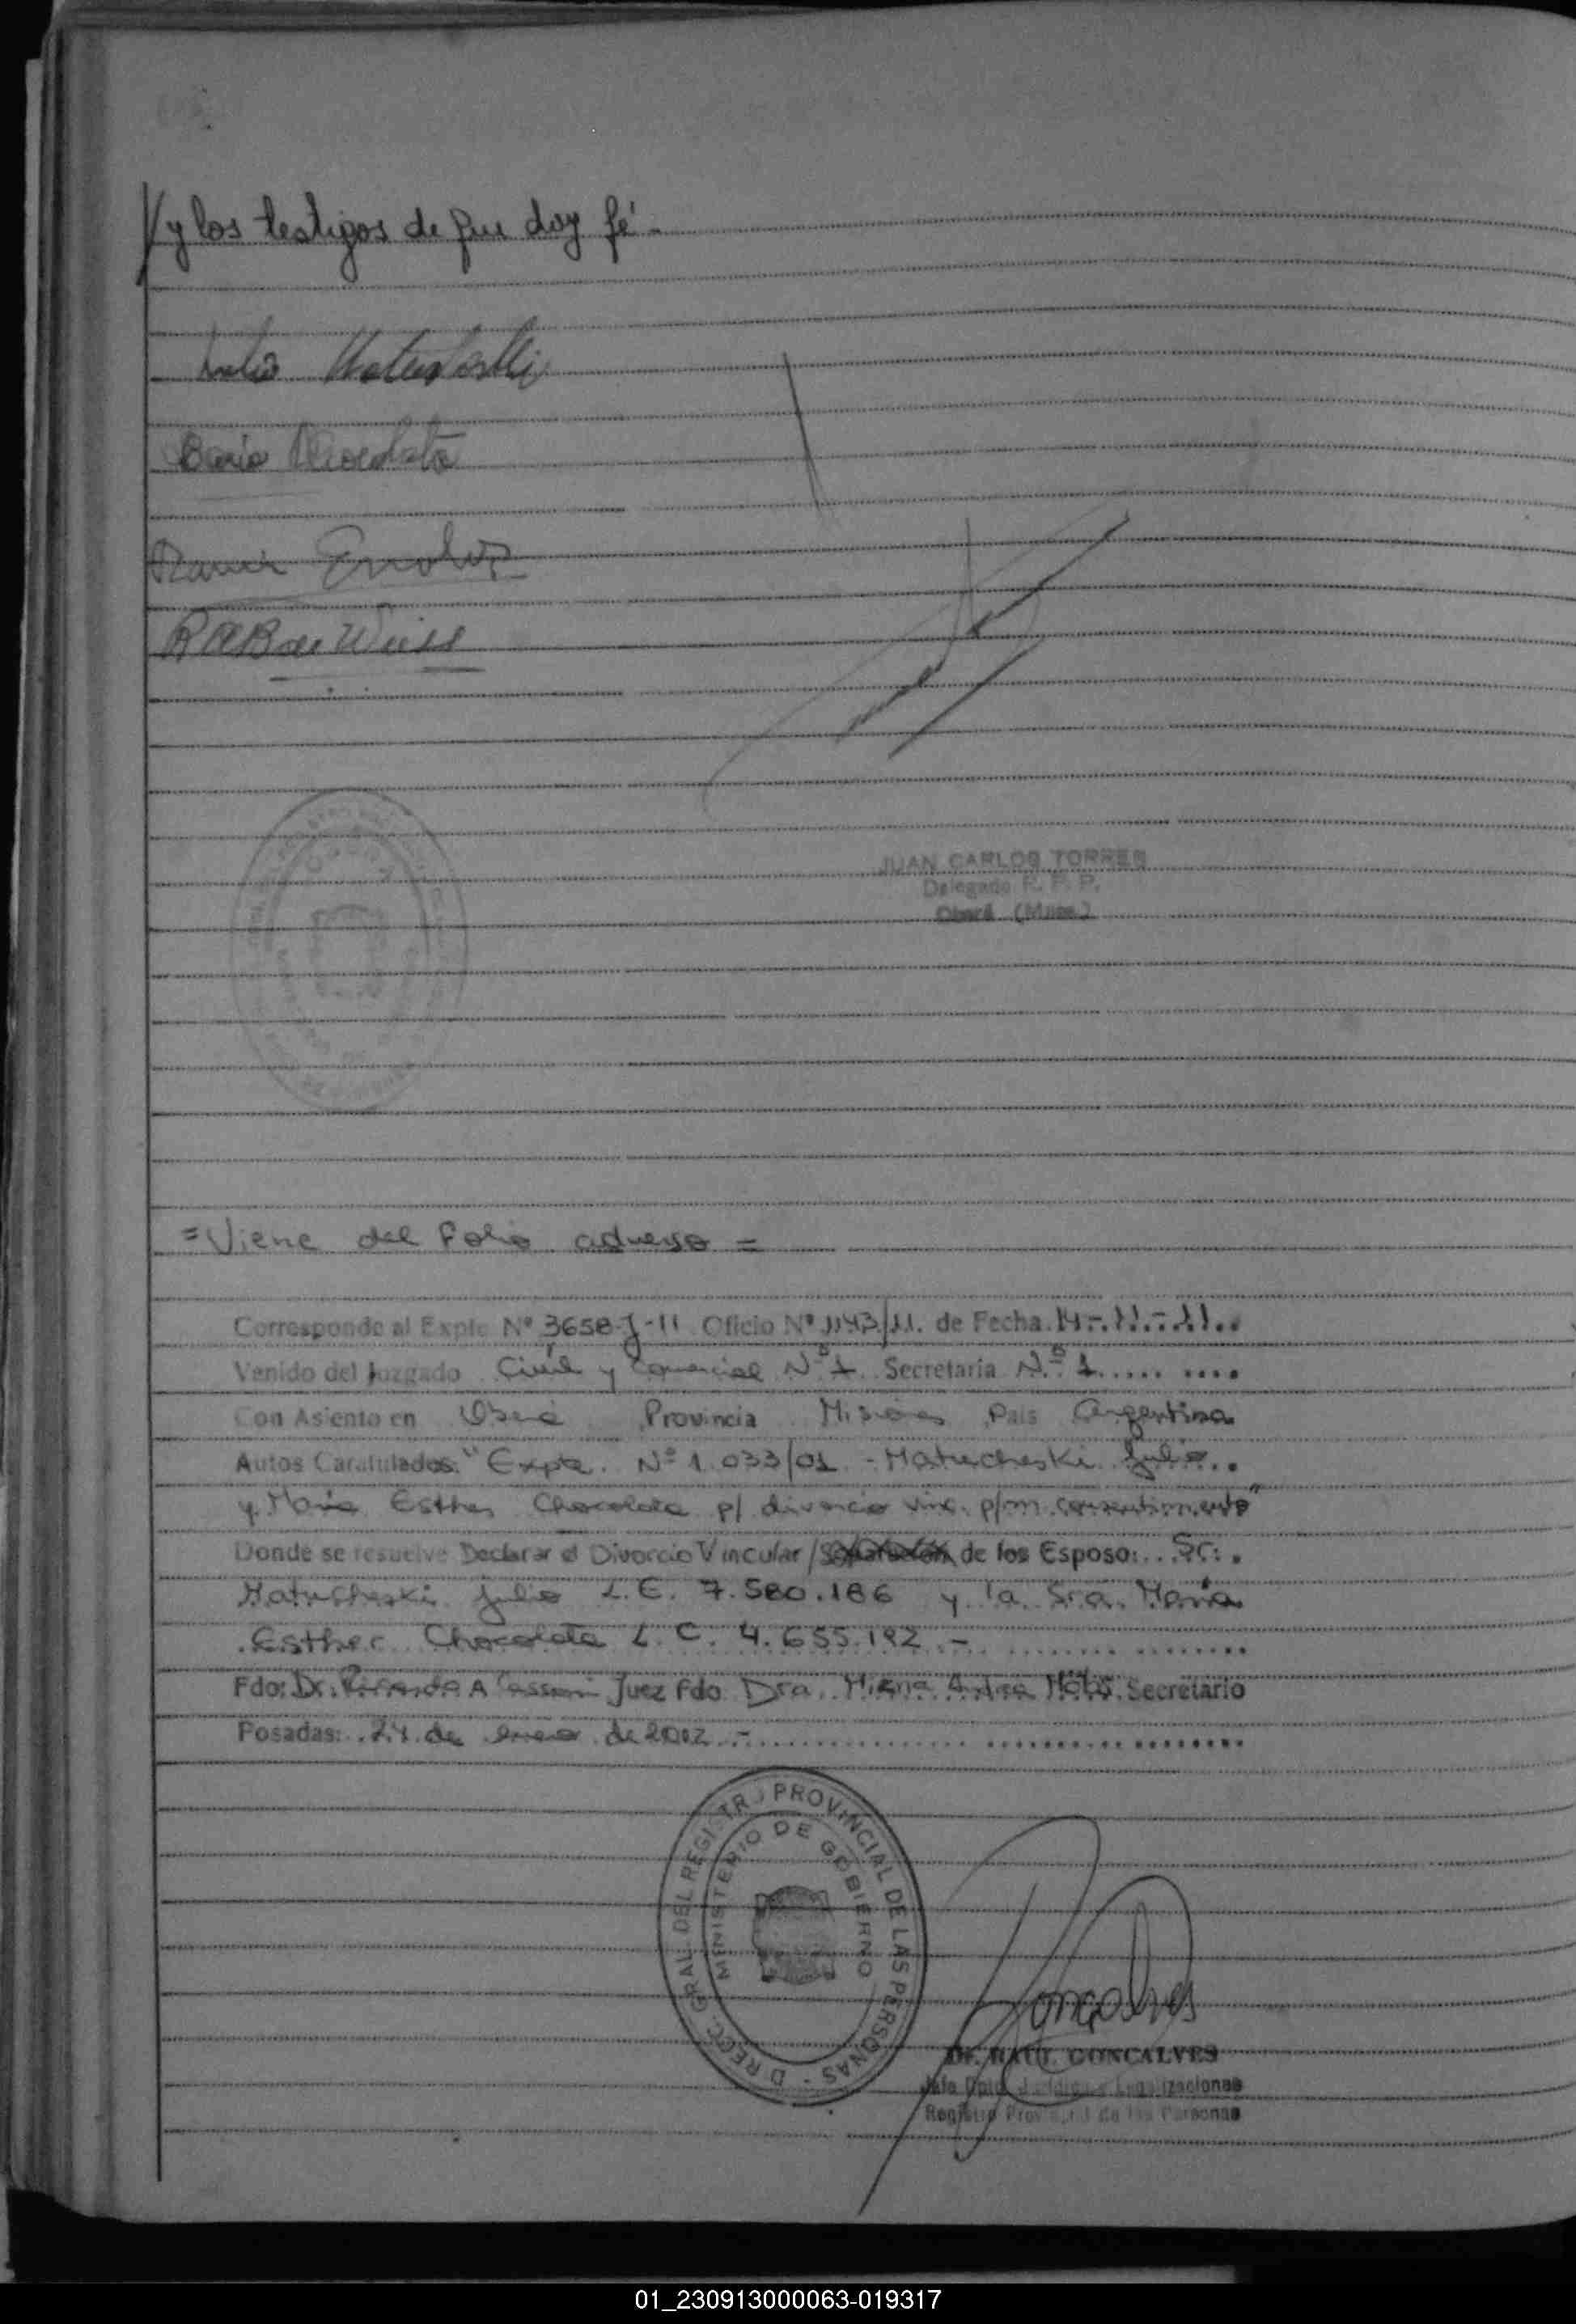 y los testigos de que doy fé.-
Julio Matucheski
María Chocolate
JUAN CARLOS TORRES
Delegado R. P. P.
Oberá (Mnes.)
= Viene del Folio adverso =
Corresponde al Expte Nº 3658-J-11 Oficio Nº 1143/11. de Fecha 14-.11.-.11..
Venido del Juzgado Civil y Comercial Nº 1 Secretaria Nº 1
Con Asiento en Oberá Provincia Misiones Pais Argentina
Autos Caratulados: "Expte. Nº 1.033/01 - Matucheski Julio
y María Esther Chocolate p/ divorcio vinc. p/m. consentimiento"
Donde se resuelve Declarar el Divorcio Vincular / Separación de los Esposo: Sr.
Matucheski Julio L.E. 7.580.186 y la Sra. María
Esther Chocolate L.C. 4.655.192.-
Fdo: Dr. A Juez Fdo. Dra. Secretario
Posadas: 24 de enero de 2012.-
DIRECC. GRAL. DEL REGISTRO PROVINCIAL DE LAS PERSONAS -
MINISTERIO DE GOBIERNO
Goncalves
Dr. RAUL GONCALVES
Jefe Dpto. Jurídico y Legalizaciones
Registro Provincial de las Personas
01_230913000063-019317